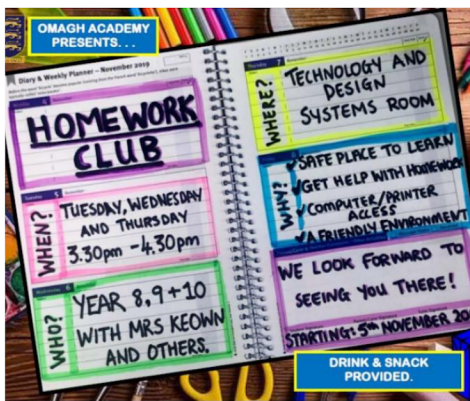 OMAGH ACADEMY
PRESENTS. . .
Diary & Weekly Planner – November 2019
HOMEWORK
CLUB
WHEN?
TUESDAY, WEDNESDAY
AND THURSDAY
3.30pm - 4.30pm
WHO?
YEAR 8,9+10
WITH MRS KEOWN
AND OTHERS.
WHERE?
TECHNOLOGY AND
DESIGN
SYSTEMS ROOM
WHY?
✓SAFE PLACE TO LEARN
✓GET HELP WITH HOMEWORK
✓COMPUTER/PRINTER
ACCESS
✓A FRIENDLY ENVIRONMENT
WE LOOK FORWARD TO
SEEING YOU THERE!
STARTING: 5th NOVEMBER
DRINK & SNACK
PROVIDED.